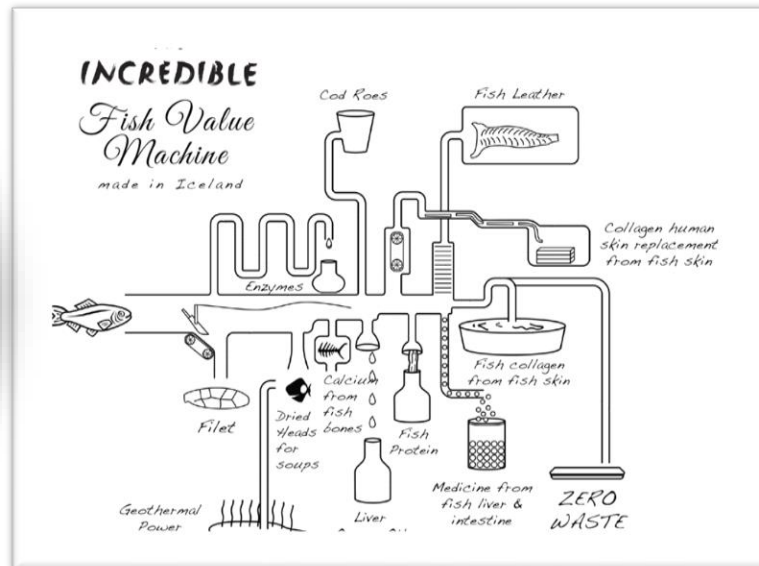 INCREDIBLE
Fish Value
Machine
made in Iceland
Cod Roes
Fish Leather
Collagen human
skin replacement
from fish skin
Enzymes
Fish collagen
from fish skin
Filet
Dried
Heads
for
soups
Calcium
from
fish
bones
Fish
Protein
Medicine from
fish liver &
intestine
ZERO
WASTE
Geothermal
Power
Liver